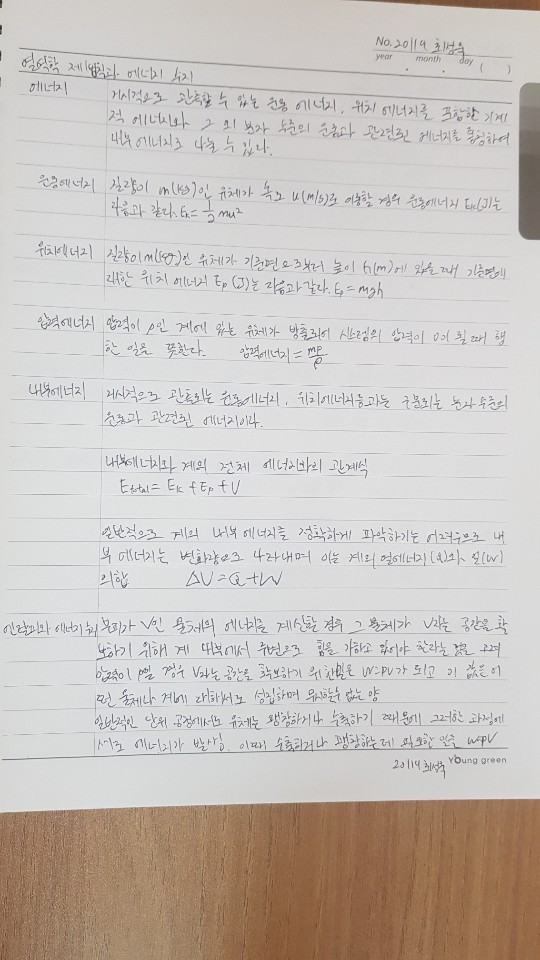 No. 20119 최성욱
year . month . day ( )
열역학 제1법칙과 에너지 수지
에너지 거시적으로 관측할 수 있는 운동 에너지, 위치 에너지를 포함한 기계
적 에너지와 그 외 분자 수준의 운동과 관련된 에너지를 총칭하여
내부에너지로 나눌 수 있다.
운동에너지 질량이 m(kg)인 유체가 속도 u(m/s)로 이동할 경우 운동에너지 Ek(J)는
다음과 같다. Ek = 1/2 mu²
위치에너지 질량이 m(kg)인 유체가 기준면으로부터 높이 h(m)에 있을 때 기준면에
대한 위치 에너지 Ep (J)는 다음과 같다. Ep = mgh
압력에너지 압력이 p인 계에 있는 유체가 방출되어 시스템의 압력이 0이 될 때 행
한 일을 뜻한다. 압력에너지 = mp/ρ
내부에너지 거시적으로 관측되는 운동에너지, 위치에너지등과는 구분되는 분자 수준의
운동과 관련된 에너지이다.
내부에너지와 계의 전체 에너지와의 관계식
Etotal = Ek + Ep + U
일반적으로 계의 내부 에너지를 정확하게 파악하기는 어려우므로 내
부 에너지는 변화량으로 나타내며 이는 계의 열에너지(Q)와 일(W)
의합 ΔU = Q + W
엔탈피와 에너지 수지 부피가 V인 물체의 에너지를 계산할 경우 그 물체가 V라는 공간을 확
보하기 위해 계 내부에서 주변으로 힘을 가하고 있어야 한다라는 것을 고려
압력이 p일 경우 V라는 공간을 확보하기 위한 일은 W=PV가 되고 이 값은 어
떤 물체나 계에 대해서도 성립하며 무시할수 없는 양
일반적인 단위 공정에서도 유체는 팽창하거나 수축하기 때문에 그러한 과정에
서도 에너지가 발생함. 이때 수축하거나 팽창하는데 필요한 일을 W=PV
20119 최성욱 Young green